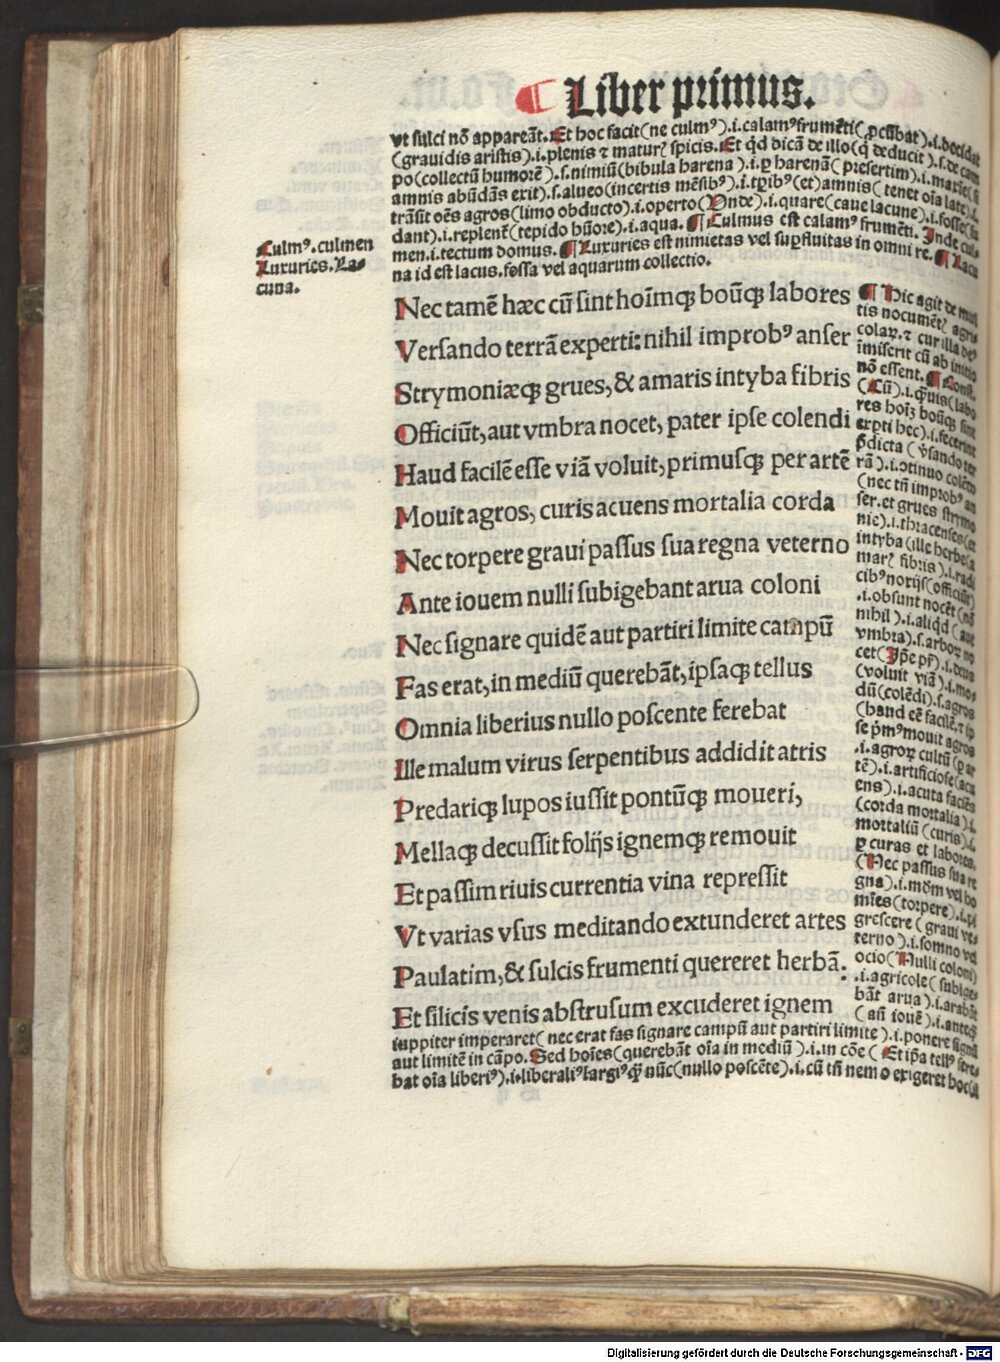 Liber primus.
vt sulci nō appareāt. Et hoc facit (ne culmꝰ) .i. calamꝰ frumēti (ꝓcūbat) .i. decidat
(grauidis aristis) .i. plenis ⁊ maturꝭ spicis. Et qd dicā de illo (q̇ deducit) .s. de cam
po (collectū humorē) .s. nimiū (bibula harena) .i. ꝑ harenā (presertim) .i. maxie (si
amnis abūdās exit) .s. alueo (incertis mēsibꝰ) .i. tꝑibꝰ (et) amnis (tenet oīa late) .i.
trāsit oēs agros (limo obducto) .i. operto (Vnde) .i. quare (caue lacune) .i. fosse (su
dant) .i. replent (tepido hūore) .i. aqua. ¶ Culmus est calamꝰ frumēti. Inde cul⸗
men .i. tectum domus. ¶ Luxuries est nimietas vel suꝑfluitas in omni re. ¶ Lacu
na id est lacus. fossa vel aquarum collectio.
Culmꝰ. culmen
Luxuries. La⸗
cuna.
Nec tamē hæc cū sint hoīmqꝫ boūqꝫ labores
Versando terrā experti: nihil improbꝰ anser
Strymoniæqꝫ grues, & amaris intyba fibris
Officiūt, aut vmbra nocet, pater ipse colendi
Haud facilē esse viā voluit, primusqꝫ per artē
Mouit agros, curis acuens mortalia corda
Nec torpere graui passus sua regna veterno
Ante iouem nulli subigebant arua coloni
Nec signare quidē aut partiri limite campū
Fas erat, in mediū querebāt, ipsaqꝫ tellus
Omnia liberius nullo poscente ferebat
Ille malum virus serpentibus addidit atris
Predariqꝫ lupos iussit pontūqꝫ moueri,
Mellaqꝫ decussit folijs ignemqꝫ remouit
Et passim riuis currentia vina repressit
Vt varias vsus meditando extunderet artes
Paulatim, & sulcis frumenti quereret herbā.
Et silicis venis abstrusum excuderet ignem
¶ Hic agit de mul
tis nocumētꝭ agri⸗
colaꝝ. ⁊ cur illa de⸗
imiserit cū ab initio
nō essent. ¶ Cons.
(Cū) .i. q̄uis (labo
res hoīꝫ boūqꝫ sint
erpti hec) .i. fecerint
p̄dicta (ṽsando ter
rā) .i. ↄtinuo colēdo
(nec tñ improbꝰ an
ser. et grues strymo
nie) .i. thracenses (et
intyba (ille herbe (a
marꝭ fibris) .i. radi
cibꝰ noxijs (officiūt)
.i. obsunt nocēt (nō
nihil) .i. aliqd (aut
vmbra) .s. arboꝝ no
cet (Ip̄e pr̄) .i. deus
(voluit viā) .i. mo⸗
dū (colēdi) .s. agros
(haud eē facilē. ⁊ ip
se p̄mꝰ mouit agros
.i. agroꝝ cultū (ꝑ ar
tē) .i. artificiose (acu
ens) .i. acuta faciēs
(corda mortalia) .i.
mortaliū (curis) .i.
ꝑ curas et labores.
(Nec passus sua re
gna) .i. mōm vel ho
mīes (torpere) .i. pi
grescere (graui ve⸗
terno) .i. somno vel
ocio (Nulli coloni)
.i. agricole (subige⸗
bāt arua) .i. arabāt
(añ iouē) .i. anteqꝫ
iuppiter imperaret (nec erat fas signare campū aut partiri limite) .i. ponere signa
aut limitē in cāpo. Sed hoīes (querebāt oīa in mediū) .i. in cōe (Et ip̄a tellꝰ fere⸗
bat oīa liberiꝰ) .i. liberaliꝰ largiꝰ qꝫ nūc (nullo poscēte) .i. cū tñ nemo exigeret
Digitalisierung gefördert durch die Deutsche Forschungsgemeinschaft - DFG